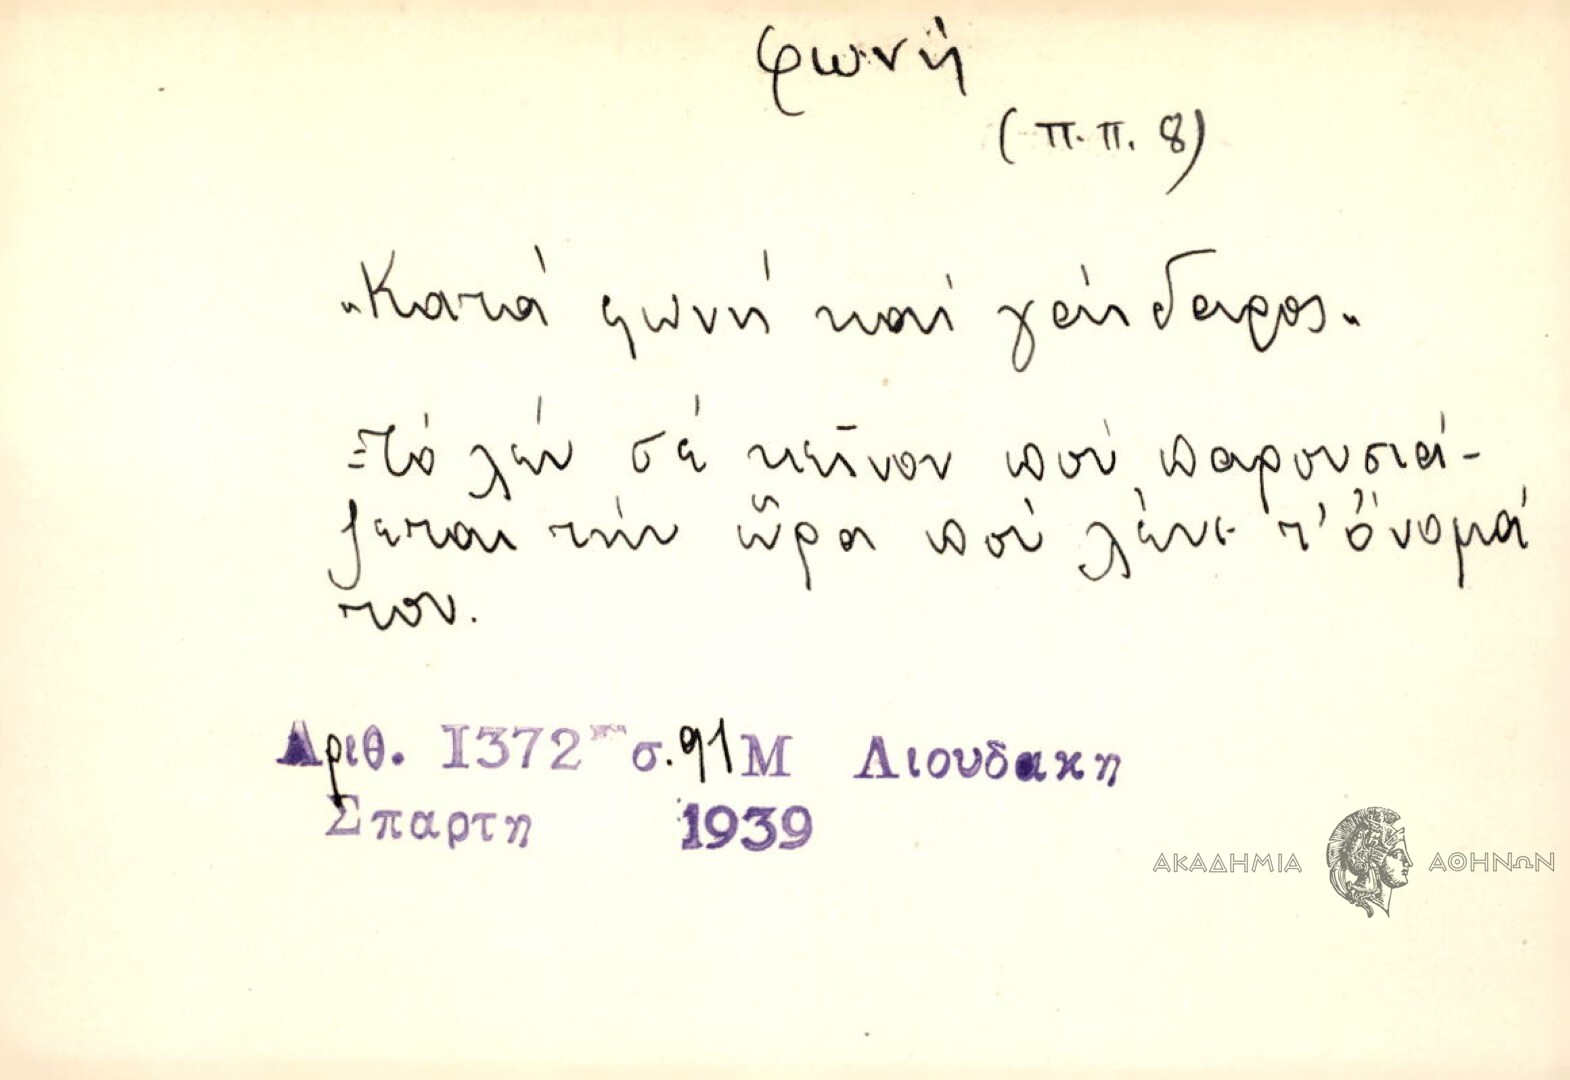 φωνή
(π.π. 8)
"Κατά φωνή καί γάιδαρος"
=Τό λέν σέ κεῖνον πού παρουσιά-
ζεται τήν ὥρα πού λένε τ' ὄνομά
του.
Αριθ. 1372 σ. 91 Μ Λιουδακη
Σπαρτη 1939
ΑΚΑΔΗΜΙΑ ΑΘΗΝΩΝ